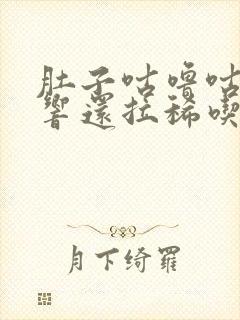 肚子咕噜咕
響還拉稀喫
月下绮羅